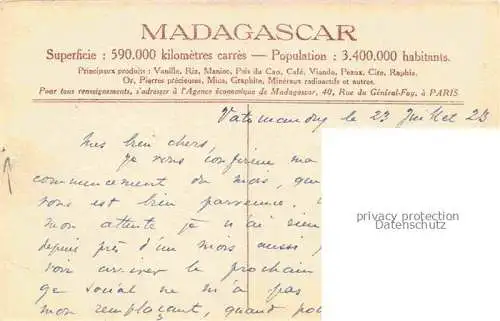 MADAGASCAR
Superficie : 590.000 kilomètres carrés — Population : 3.400.000 habitants.
Principaux produits : Vanille, Riz, Manioc, Pois du Cap, Café, Viande, Peaux, Cire, Raphia,
Or, Pierres précieuses, Mica, Graphite, Minéraux radioactifs et autres.
Pour tous renseignements, s'adresser à l'Agence économique de Madagascar, 40, Rue du Général-Foy, à PARIS
Vatomandry le 23 Juillet 25
Mes bien chers,
Je vous confirme ma
commencement du mois, que
vous est bien parvenue.
mon attente je n'ai rien
depuis près d'un mois aussi,
voir arriver le prochain
ge social ne m'a pas
mon remplaçant, quand
privacy protection
Datenschutz